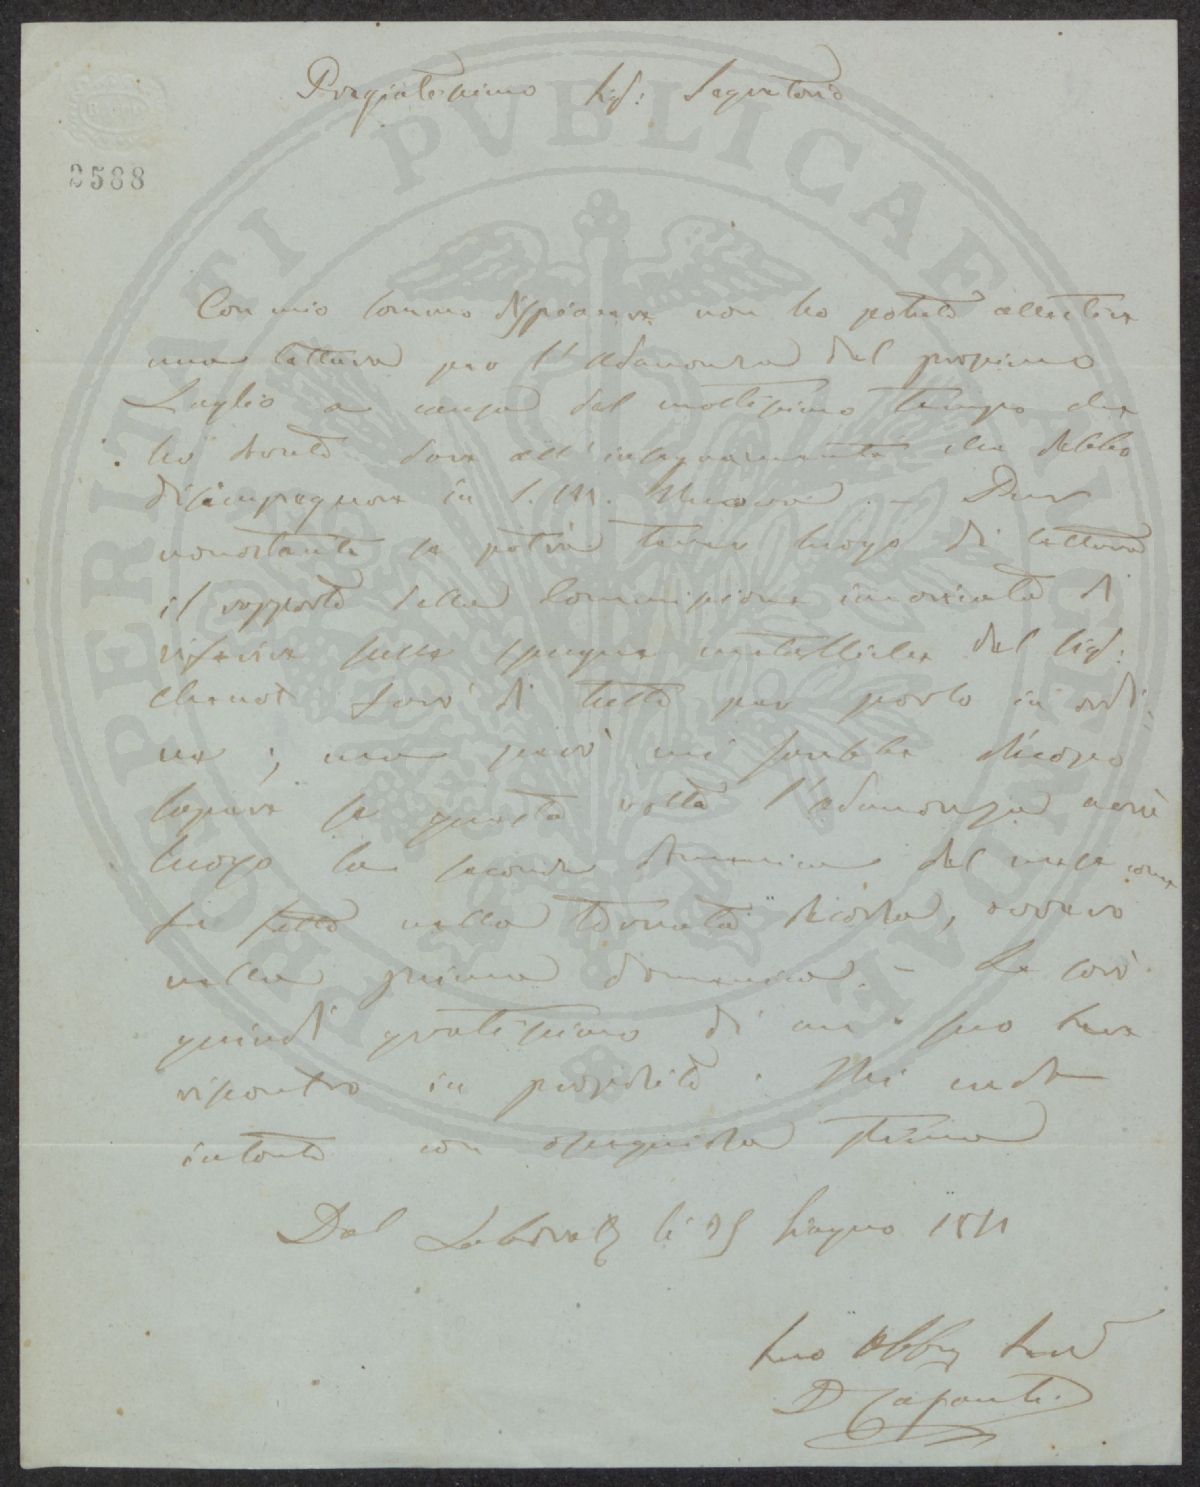 Pregiatissimo Sig: Segretario
2588
PROSPERITATI PVBLICAE AVGENDAE
Con mio sommo dispiacere non ho potuto allestire
una lettura per l'Adunanza del prossimo
Luglio a causa del moltissimo tempo che
ho dovuto dare all'insegnamento che debbo
disimpegnare in S. M. Nuova. – Pur
nonostante se potrà tener luogo di lettura
il rapporto della Commissione incaricata di
riferire sulle spugne metalliche del Sig:
Chenot farò di tutto per porlo in ordi-
ne; ma però mi sarebbe d'uopo
sapere se questa volta l'adunanza avrà
luogo la seconda domenica del mese come
fu fatto nella tornata decorsa, ovvero
nella prima domenica. – Le sarò
quindi gratissimo di un suo
riscontro in proposito. Mi creda
intanto con ossequiosa stima
Dal Laborat. li 25 Giugno 1851
Suo Obb. Serv
D Capanti